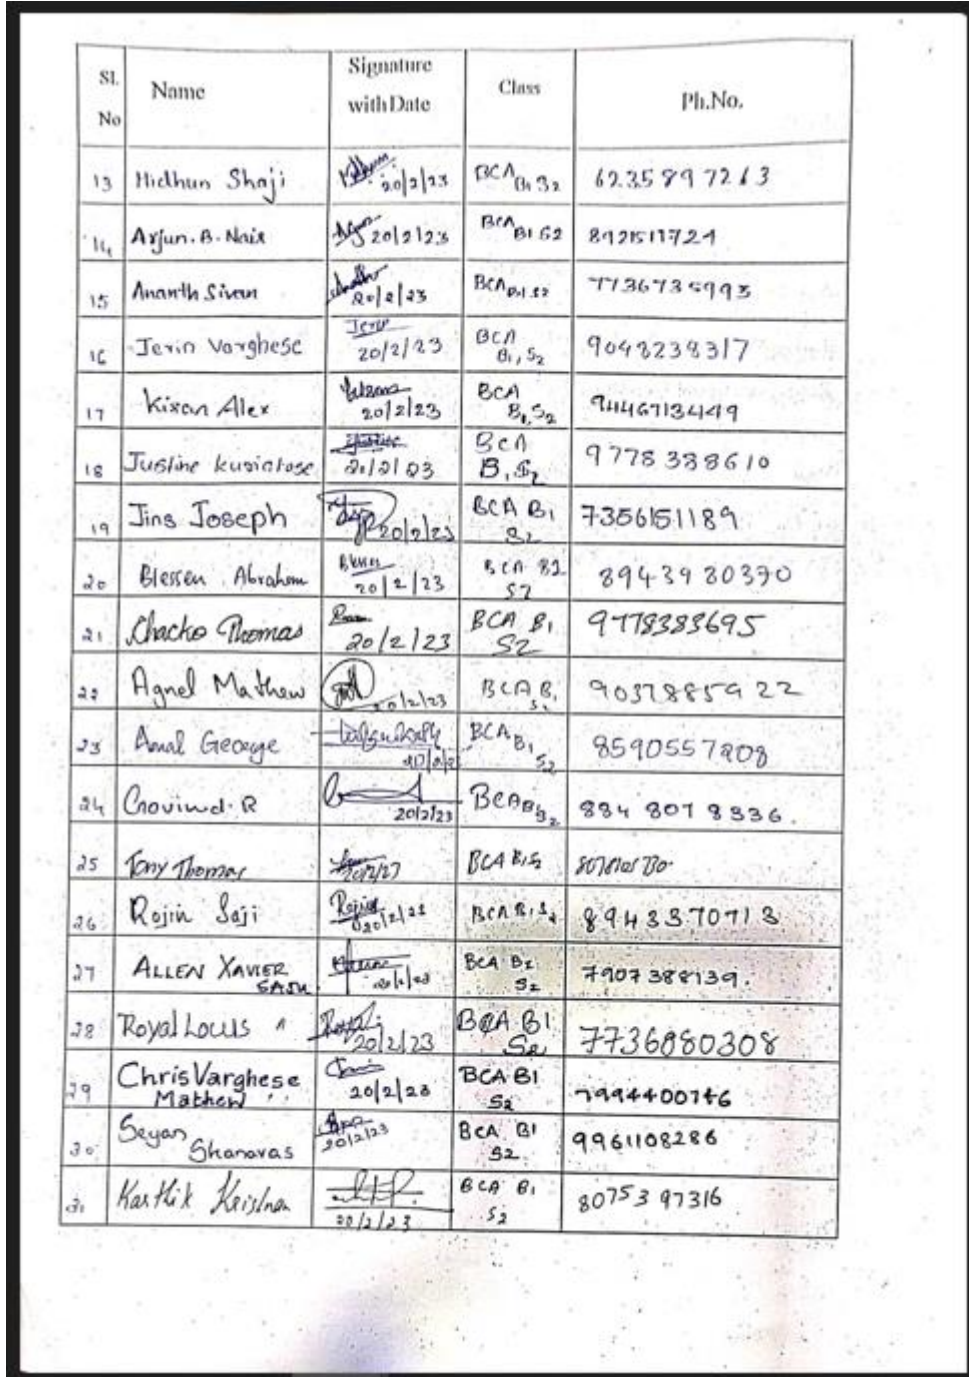 Sl. No Name Signature with Date Class Ph.No.
13 Midhun Shaji 20/2/23 BCA B1 S2 6235897263
14 Arjun.B.Nair 20/2/23 BCA B1 S2 8921511724
15 Ananth Sivan 20/2/23 BCA B1 S2 7736735993
16 Jerin Varghese 20/2/23 BCA B1, S2 9048238317
17 Kiran Alex 20/2/23 BCA B1, S2 9446713449
18 Justine kuriakose BCA B1 S2 9778388610
19 Jins Joseph 20/2/23 BCA B1 S2 7356151189
20 Blessen Abraham 20/2/23 BCA B2 S2 8943980370
21 Chacko Thomas 20/2/23 BCA B1 S2 9778383695
22 Agnel Mathew 20/2/23 BCA B1 9037885922
23 Amal George BCA B1 S2 8590557208
24 Govind.R 20/2/23 BCA B1 S2 884 807 8336.
25 Tony Thomas BCA B1 S2
26 Rojin Saji Rojin 20/2/23 BCA B1 S2 8943370713
27 ALLEN XAVIER SAJU BCA B1 S2 7907388139.
28 Royal Louis 20/2/23 BCA B1 S2 7736880308
29 Chris Varghese Mathew 20/2/23 BCA B1 S2 7994400746
30 Seyan Shanavas 20/2/23 BCA B1 S2 9961108286
31 Karthik Krishnan 20/2/23 BCA B1 S2 80753 97316